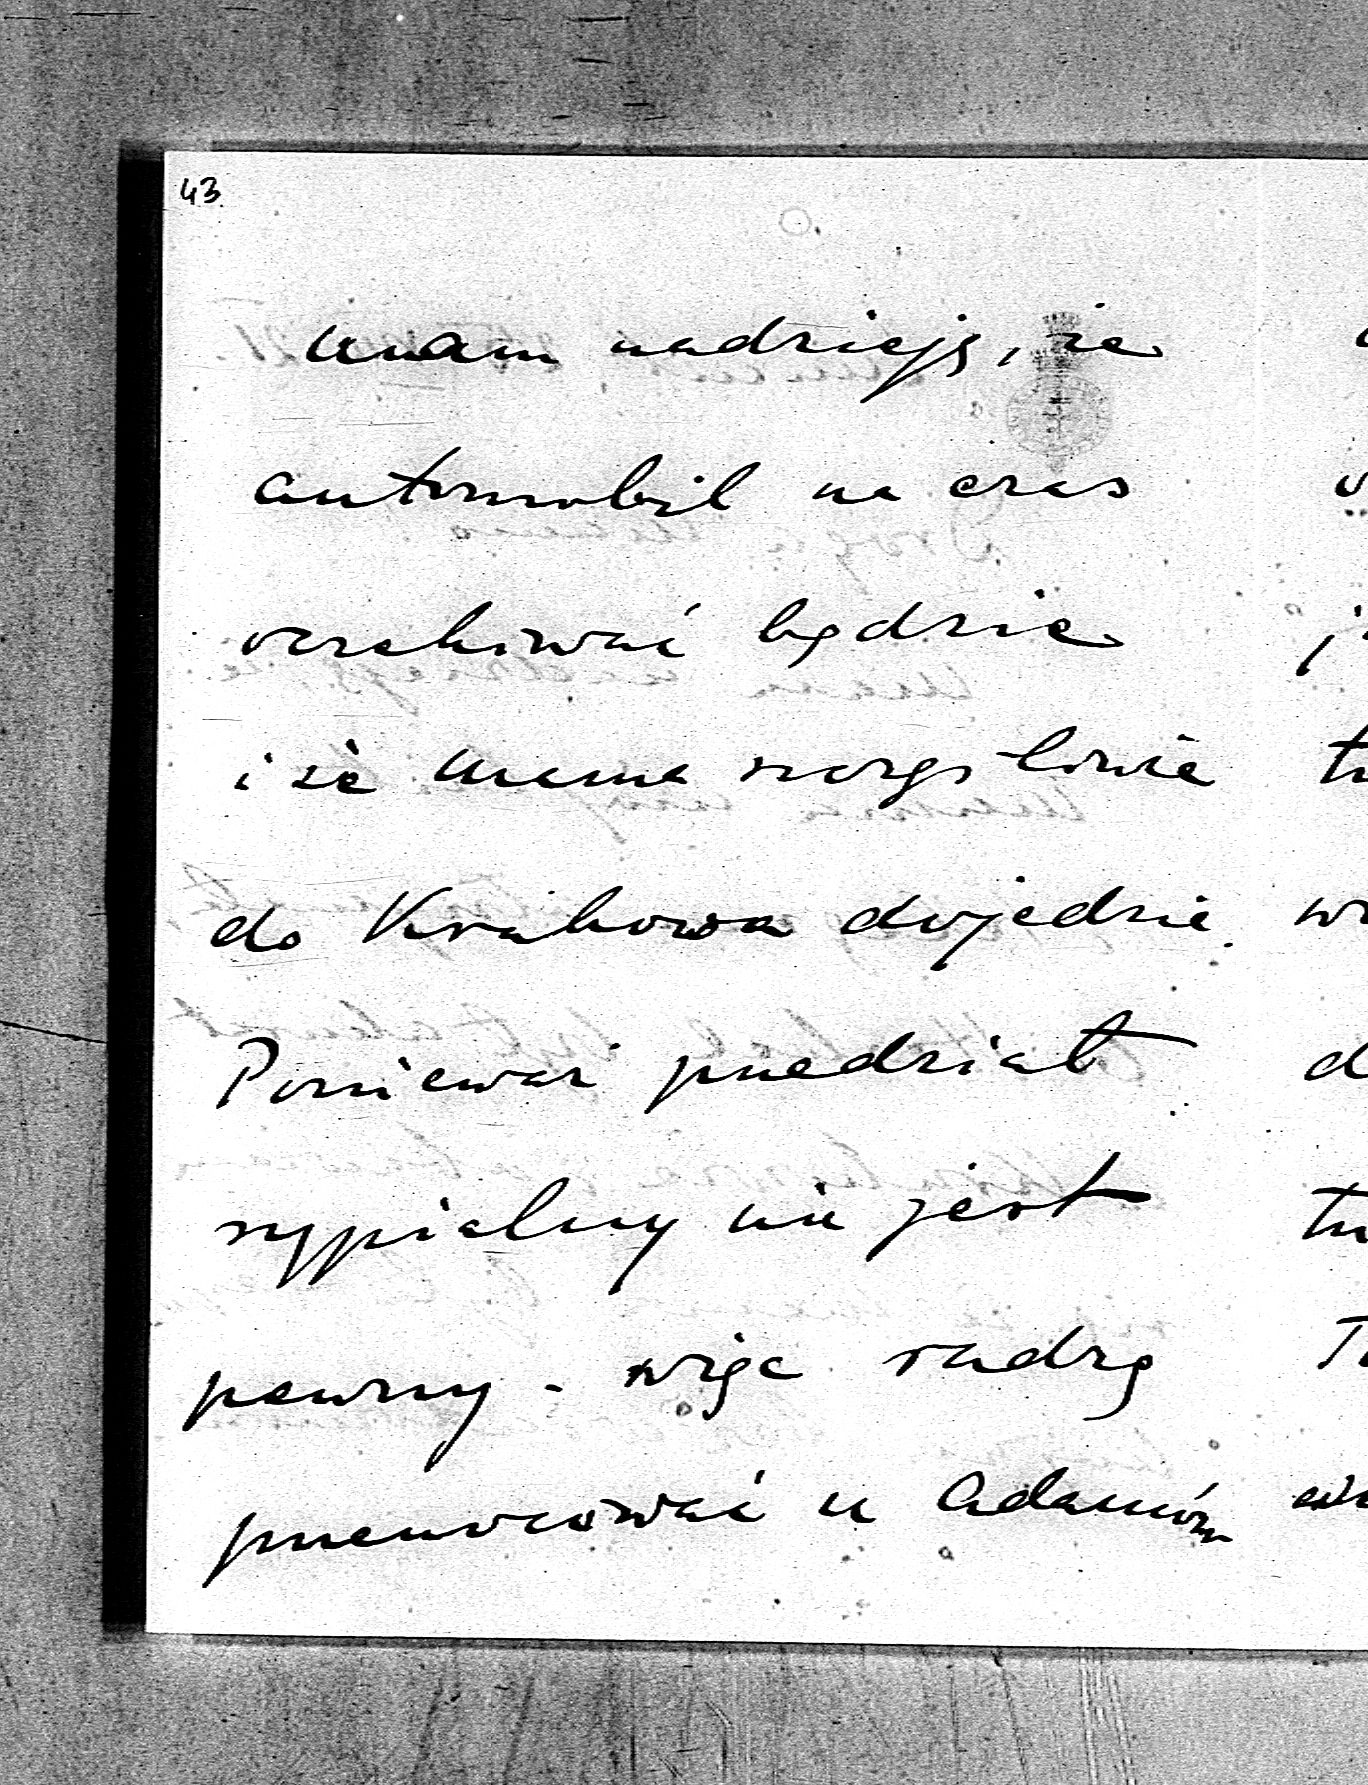 43
mam nadzieję, że
automobil na czas
oczekiwać będzie
i że mama szczęśliwie
do Krakowa dojedzie.
Ponieważ przedział
sypialny nie jest
pewny - więc radzę
przenocować u Adamów